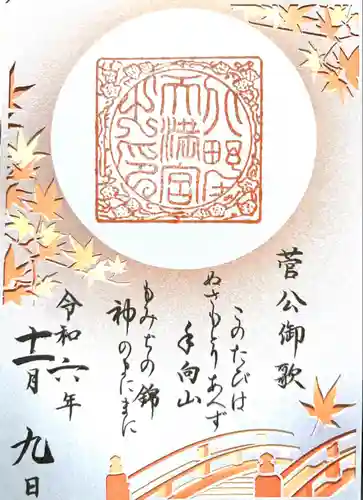 天満宮
菅公御歌
このたびは
ぬさもとりあへず
手向山
もみぢの錦
神のまにまに
令和六年
十一月 九日